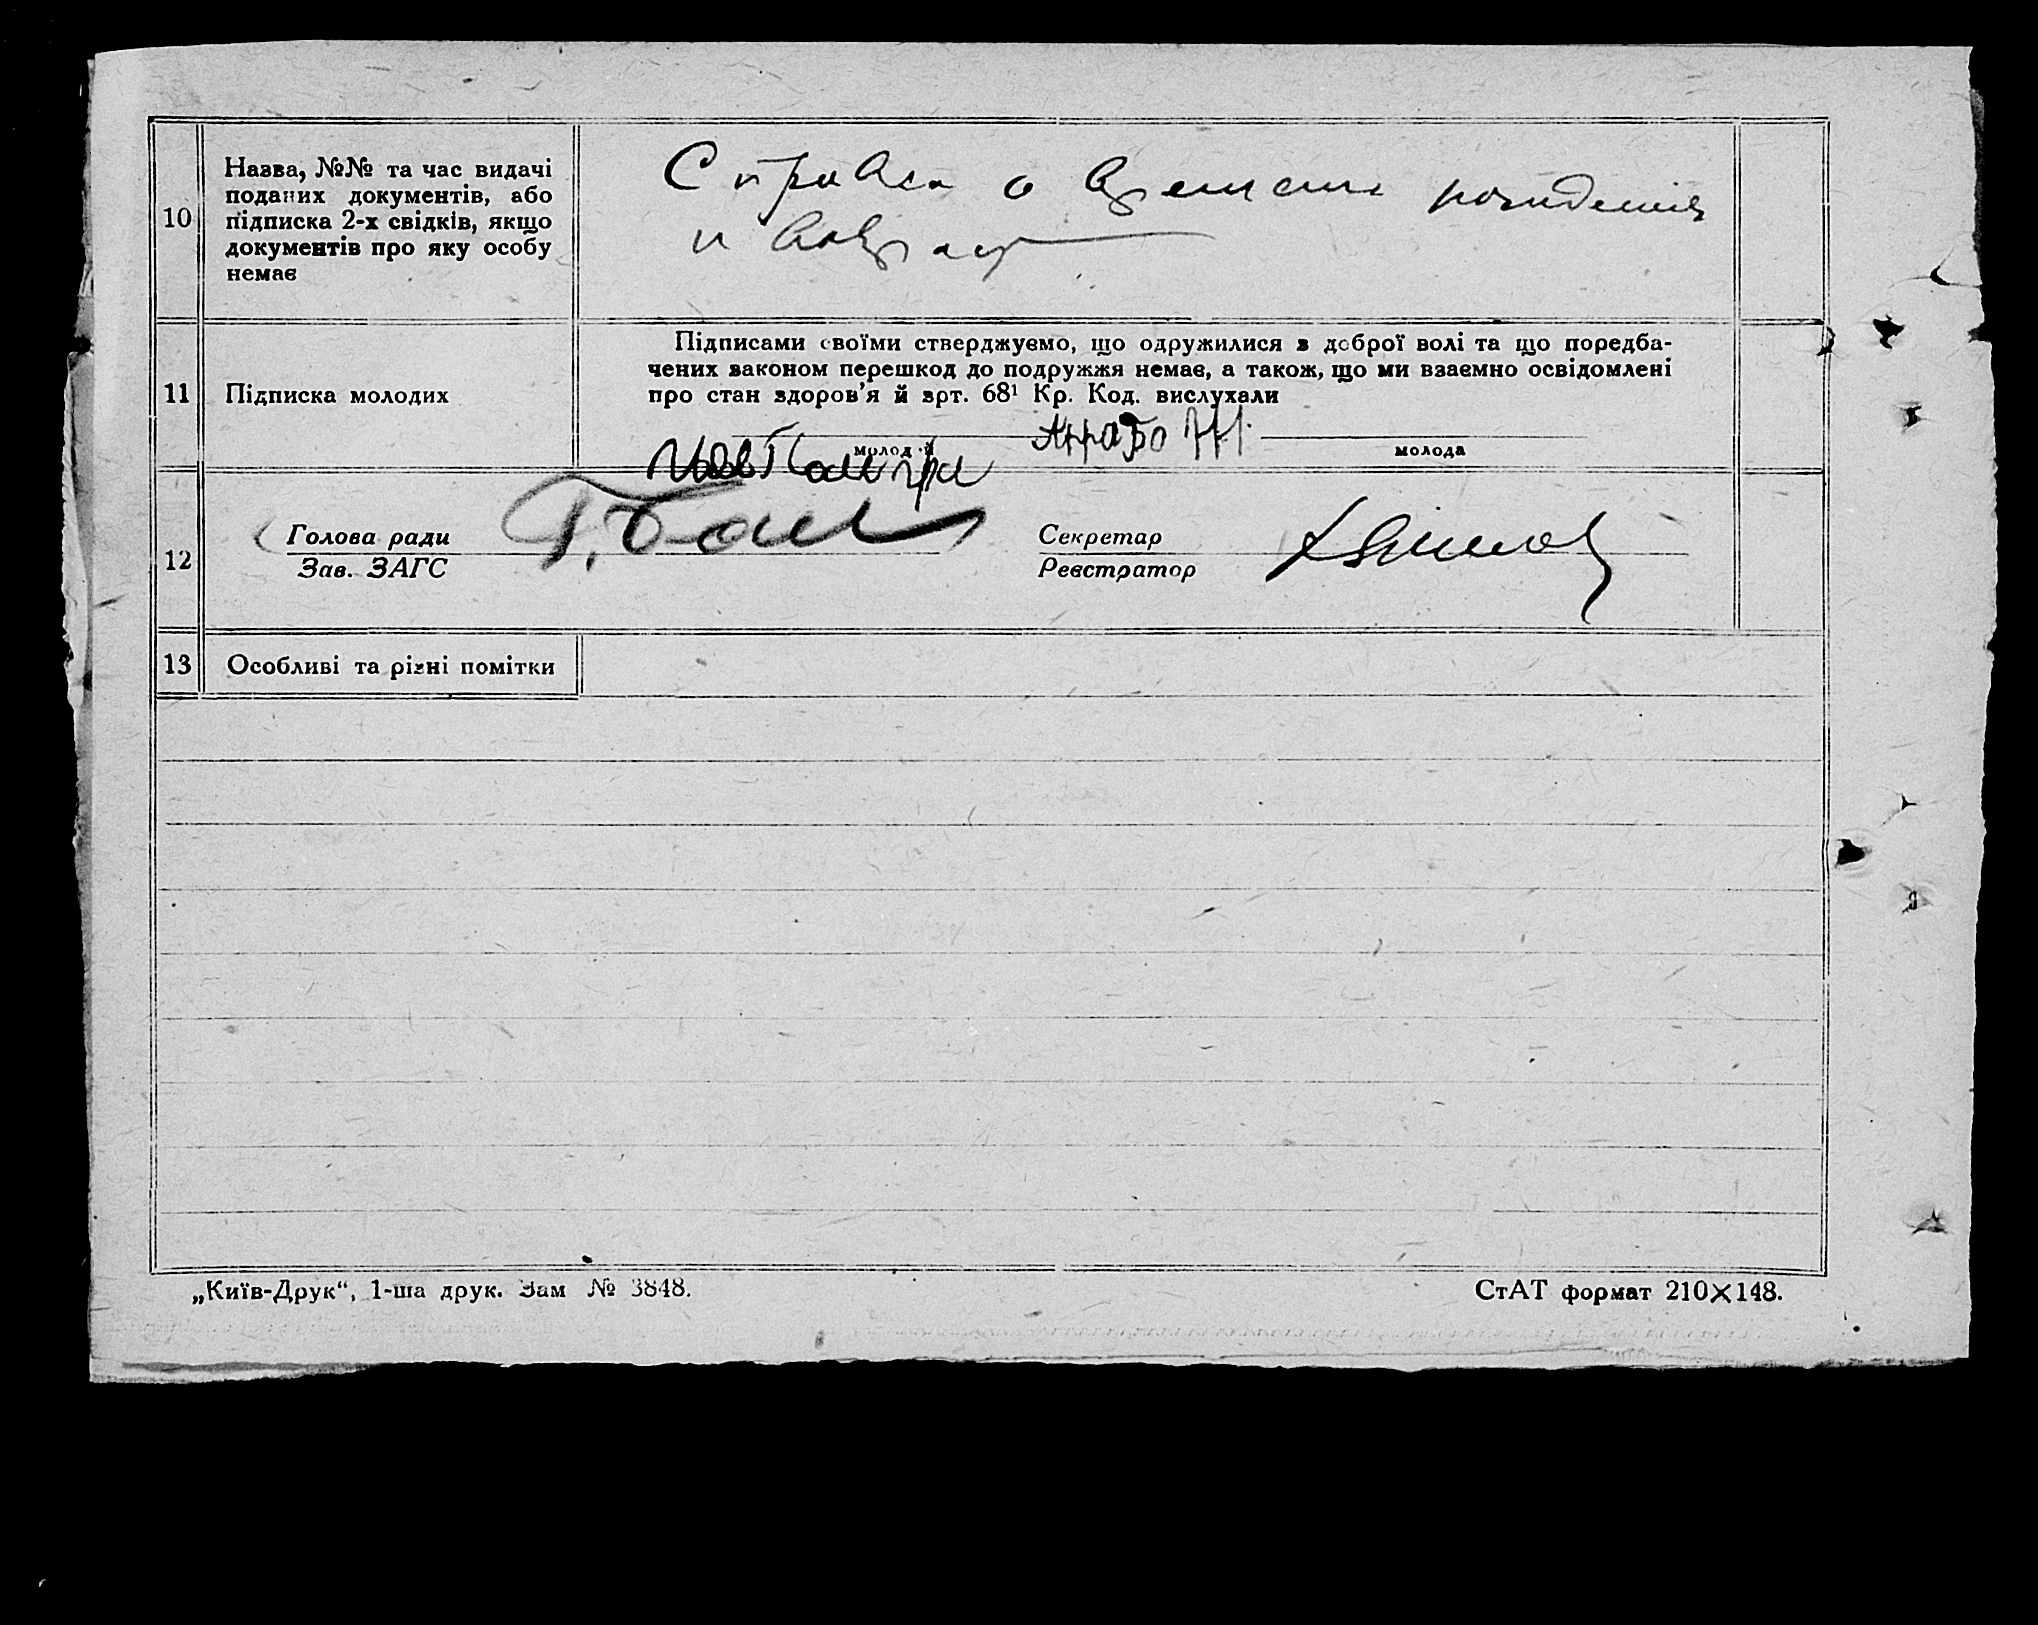 10
Назва, №№ та час видачі
поданих документів, або
підписка 2-х свідків, якщо
документів про яку особу
немає
Справка о времени рождения
и возраст
11
Підписка молодих
Підписами своїми стверджуємо, що одружилися з доброї волі та що поредба-
чених законом перешкод до подружжя немає, а також, що ми взаємно освідомлені
про стан здоров'я й арт. 68¹ Кр. Код. вислухали
молодий
молода
12
Голова ради
Зав. ЗАГС
Секретар
Реєстратор
13
Особливі та різні помітки
„Київ-Друк“, 1-ша друк. Зам № 3848.
СтАТ формат 210×148.